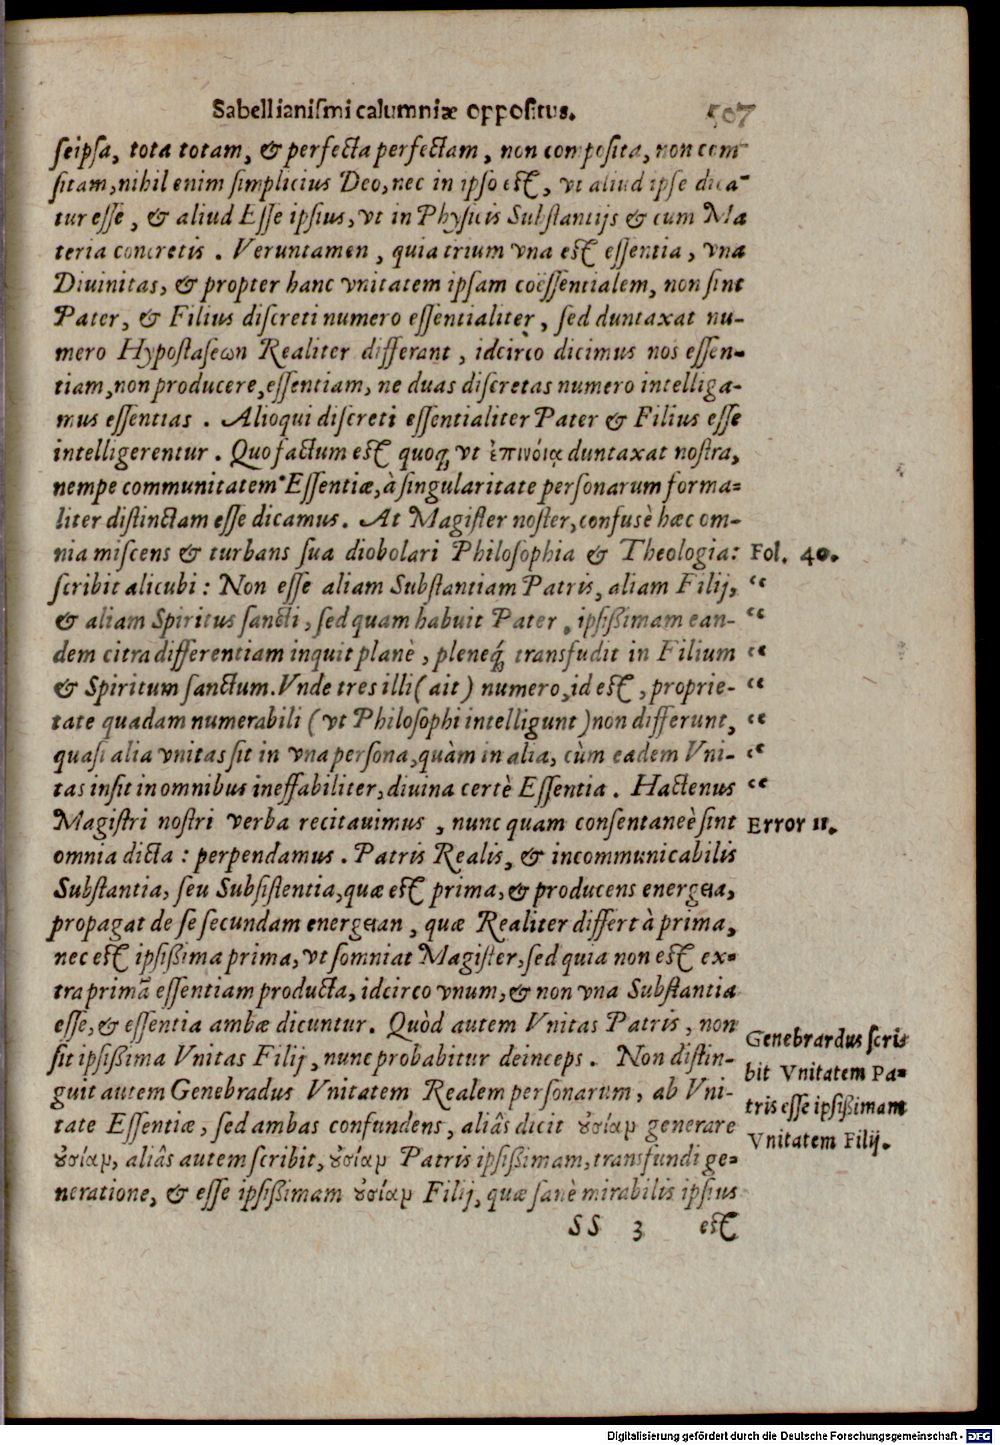 Sabellianiſmi calumniæ oppoſitus. 507
ſeipſa, tota totam, & perfecta perfectam, non compoſita, non com
ſitam, nihil enim ſimplicius Deo, nec in ipſo eſt, vt aliud ipſe dica-
tur eſſe, & aliud Eſſe ipſius, vt in Phyſicis Subſtantijs & cum Ma
teria concretis. Veruntamen, quia trium vna eſt eſſentia, vna
Diuinitas, & propter hanc vnitatem ipſam coëſſentialem, non ſint
Pater, & Filius diſcreti numero eſſentialiter, ſed duntaxat nu-
mero Hypoſtaſeων Realiter differant, idcirco dicimus nos eſſen-
tiam, non producere, eſſentiam, ne duas diſcretas numero intelliga-
mus eſſentias. Alioqui diſcreti eſſentialiter Pater & Filius eſſe
intelligerentur. Quo factum eſt quoq; vt ἐπινόιᾳ duntaxat noſtra,
nempe communitatem Eſſentiæ, à ſingularitate perſonarum forma-
liter diſtinctam eſſe dicamus. At Magiſter noſter, confusè hæc om-
nia miſcens & turbans ſua diobolari Philoſophia & Theologia: Fol. 40.
ſcribit alicubi: Non eſſe aliam Subſtantiam Patris, aliam Filij, “
& aliam Spiritus ſancti, ſed quam habuit Pater, ipſißimam ean- “
dem citra differentiam inquit planè, pleneq́; transfudit in Filium “
& Spiritum ſanctum. Vnde tres illi (ait) numero, id eſt, proprie- “
tate quadam numerabili (vt Philoſophi intelligunt) non differunt, “
quaſi alia vnitas ſit in vna perſona, quàm in alia, cùm eadem Vni- “
tas inſit in omnibus ineffabiliter, diuina certè Eſſentia. Hactenus “
Magiſtri noſtri verba recitauimus, nunc quam conſentaneè ſint Error 11.
omnia dicta: perpendamus. Patris Realis, & incommunicabilis
Subſtantia, ſeu Subſiſtentia, quæ eſt prima, & producens energεια,
propagat de ſe ſecundam energειan, quæ Realiter differt à prima,
nec eſt ipſißima prima, vt ſomniat Magiſter, ſed quia non eſt ex-
tra primā eſſentiam producta, idcirco vnum, & non vna Subſtantia
eſſe, & eſſentia ambæ dicuntur. Quòd autem Vnitas Patris, non
ſit ipſißima Vnitas Filij, nunc probabitur deinceps. Non diſtin-
guit autem Genebradus Vnitatem Realem perſonarum, ab Vni-
tate Eſſentiæ, ſed ambas confundens, aliâs dicit ȣσίαμ generare
ȣσίαμ, aliâs autem ſcribit, ȣσίαμ Patris ipſißimam, transfundi ge-
neratione, & eſſe ipſißimam ȣσίαμ Filij, quæ ſanè mirabilis ipſius
Genebrardus ſcri
bit Vnitatem Pa-
tris eſſe ipſißimam
Vnitatem Filij.
SS 3 eſt
Digitalisierung gefördert durch die Deutsche Forschungsgemeinschaft - DFG